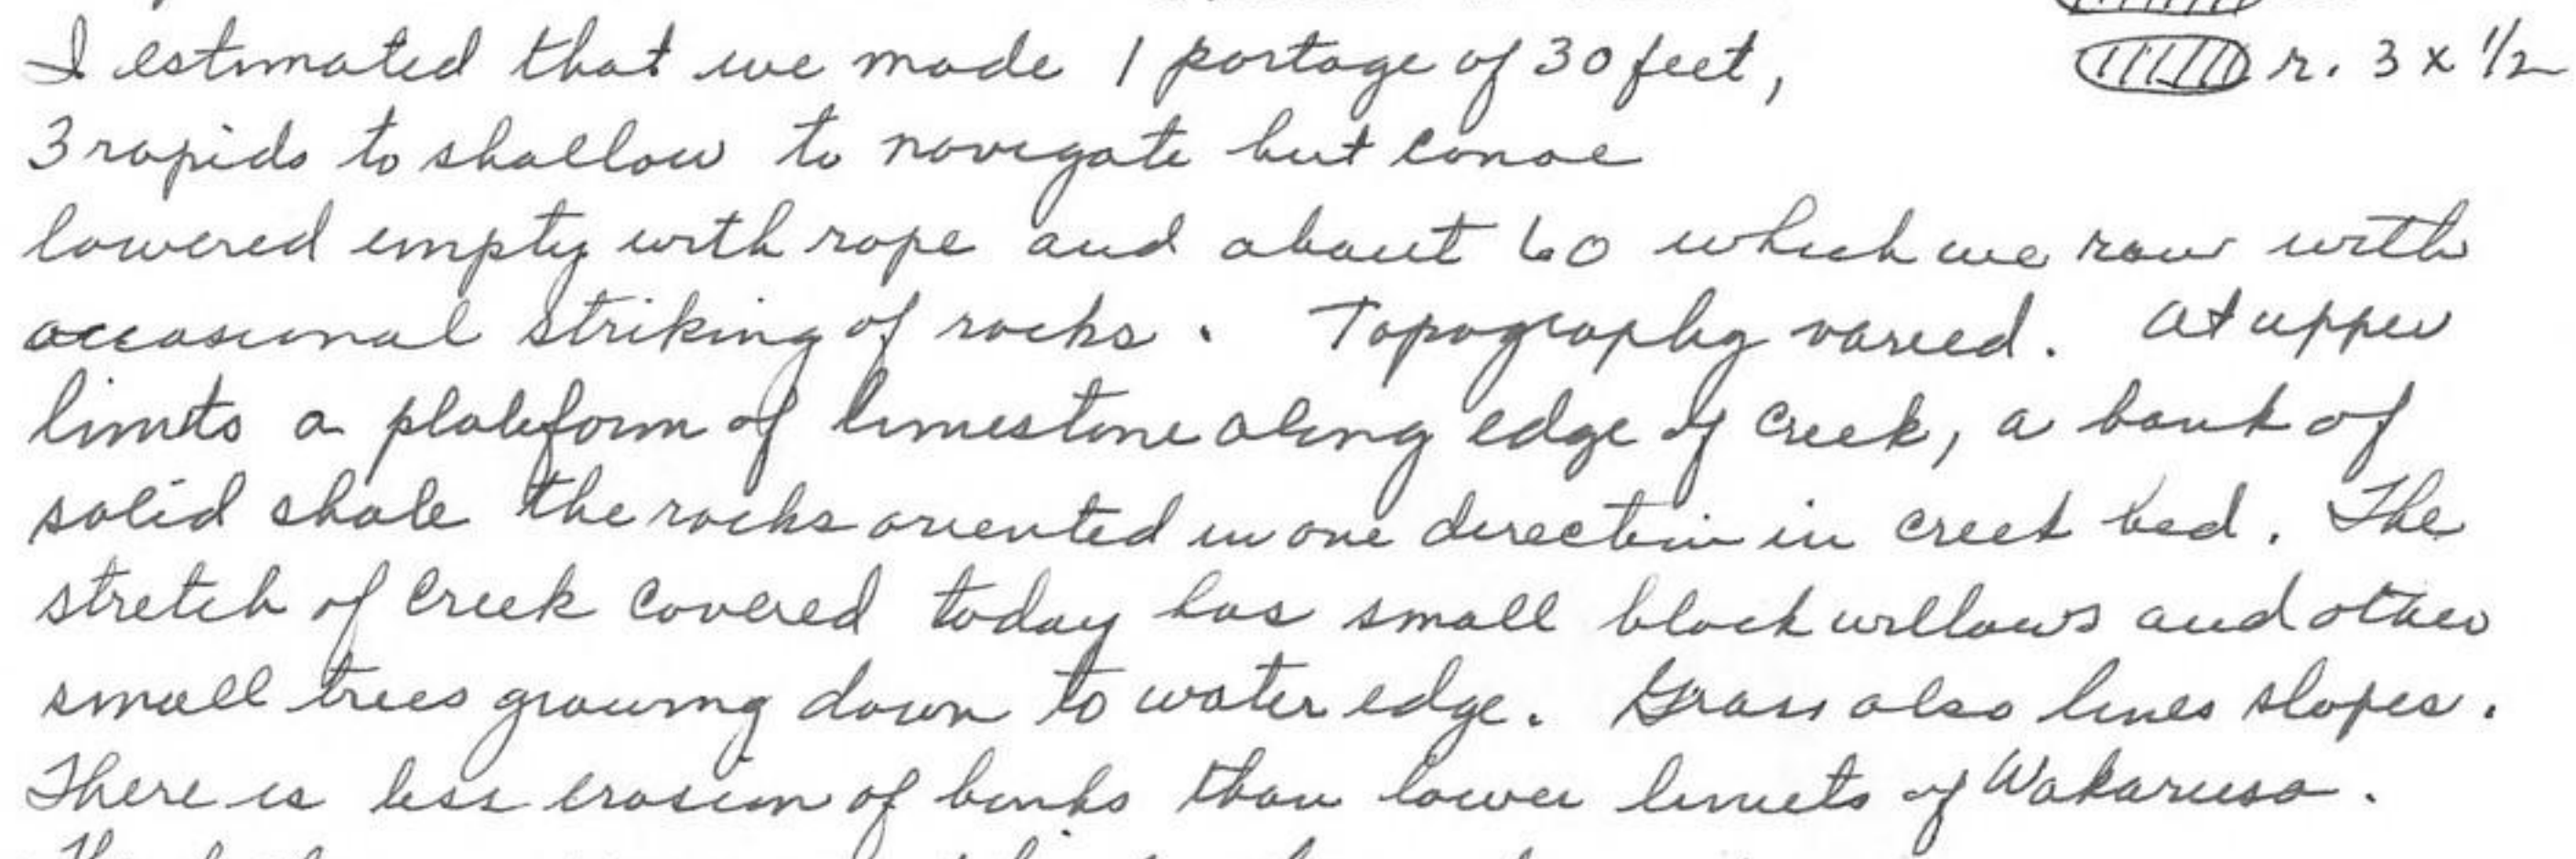 I estimated that we made 1 portage of 30 feet,
r. 3 x 1/2
3 rapids to shallow to navigate but canoe
lowered empty with rope and about 60 which we raw with
occasional striking of rocks. Topography varied. At upper
limits a plateform of limestone along edge of creek, a bank of
solid shale the rocks oriented in one direction in creek bed. The
stretch of creek covered today has small black willows and other
small trees growing down to water edge. Grass also lines slopes.
There is less erosion of banks than lower limits of Wakarusa.